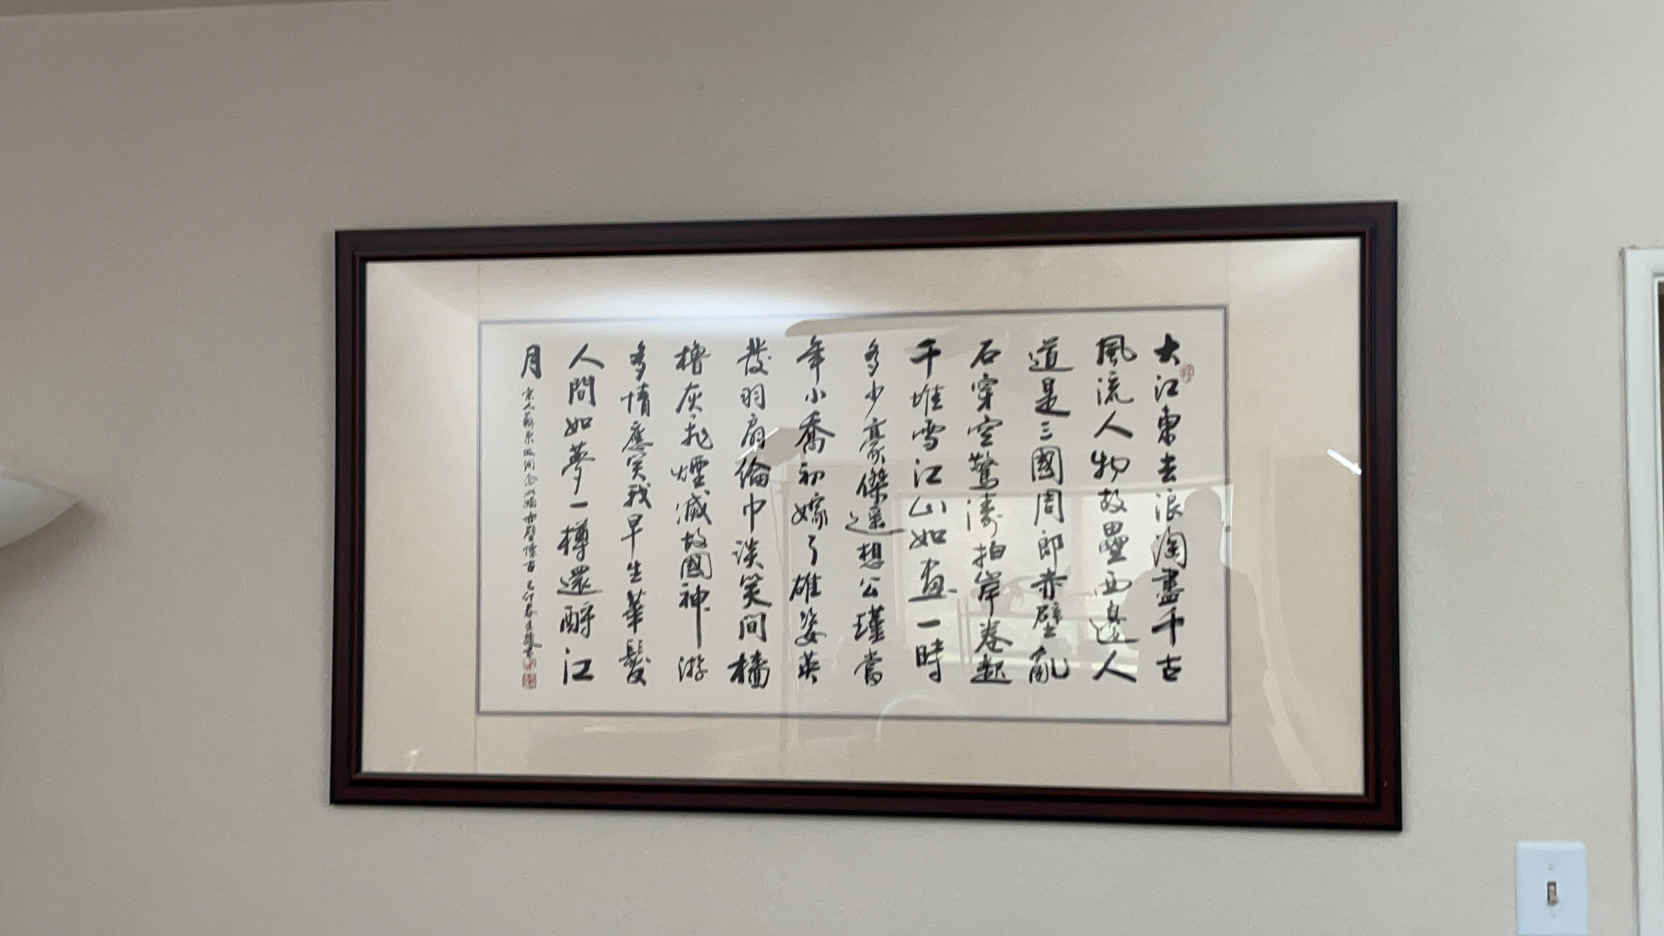 大江東去浪淘盡千古
風流人物故壘西邊人
道是三國周郎赤壁亂
石穿空驚濤拍岸卷起
千堆雪江山如畫一時
多少豪傑遙想公瑾當
年小喬初嫁了雄姿英
發羽扇綸巾談笑間檣
櫓灰飛煙滅故國神游
多情應笑我早生華髮
人間如夢一樽還酹江
月
宋人蘇東坡詞念奴嬌赤壁懷古己卯春